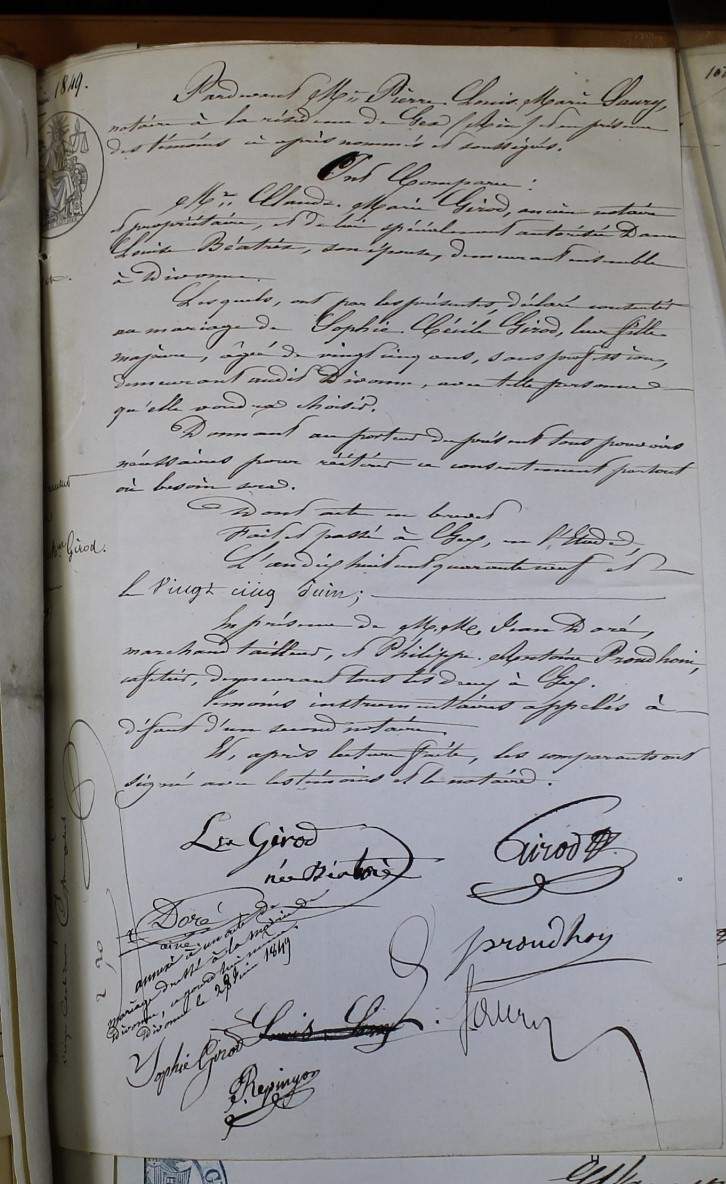 1849.
Pardevant Me Pierre Louis Marie Saury,
notaire à la résidence de Gex (Ain) et en présence
des témoins ci après nommés et soussignés.
Ont Comparu :
Mr. Claude Marie Girod, ancien notaire
et propriétaire, et de lui spécialement autorisée Dame
Louise Béatrix, son épouse, demeurant ensemble
à Divonne.
Lesquels, ont par les présentes, déclaré consentir
au mariage de Sophie Cécile Girod, leur fille
majeure, âgée de vingt cinq ans, sans profession,
demeurant audit Divonne, avec telle personne
qu'elle voudra choisir.
Donnant au porteur du présent tous pouvoirs
nécessaires pour réitérer ce consentement partout
où besoin sera.
Dont acte en brevet
Fait et passé à Gex, en l'Etude,
L'an dix huit cent quarante neuf et
le Vingt cinq Juin ;
En présence de MM. Jean Doré,
marchand tailleur, et Philippe Antoine Proudhon,
cafetier, demeurant tous les deux à Gex.
Témoins instrumentaires appelés à
défaut d'un second notaire.
Et, après lecture faite, les comparants ont
signé avec les témoins et le notaire.
Girod.
Lse Girod
née Béatrix
Girod
Doré
ainé
proudhon
annexé à un acte de
mariage de té à la mairie de
Divonne, aujourd'hui
Divonne le 28 Juin 1849
Saury
Sophie Girod
Louis